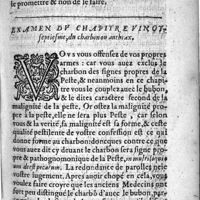 le promettre & non de le faire.
EXAMEN DV CHAPITRE VINGT-
septiesme, du charbon ou anthrax.
Vovs vous offensez de vos propres
armes: car vous auez exclus le
charbon des signes propres de la
Peste, & neantmoins en ce chapi-
tre vous le couplez auec le bubon,
& le dites caractere second de la
malignité de la peste. Or ostez la malignité pro-
pre à la peste, elle ne sera plus Peste, car selon
vous & la verité, sa malignité est sa forme, & ceste
qualité pestilente de vostre confession est ce qui
donne forme au charbon: doncques contre ce que
vous auez dit cy deuant le charbon sera signe pro-
pre & pathognomonique de la Peste,
La redondance de paroles n'est
pas nostre sujet. Apres auoir chopé en cela, vous
voulez faire croyre que les anciens Medecins ont
fort peu distingué le charbõ d'auec le bubon, par